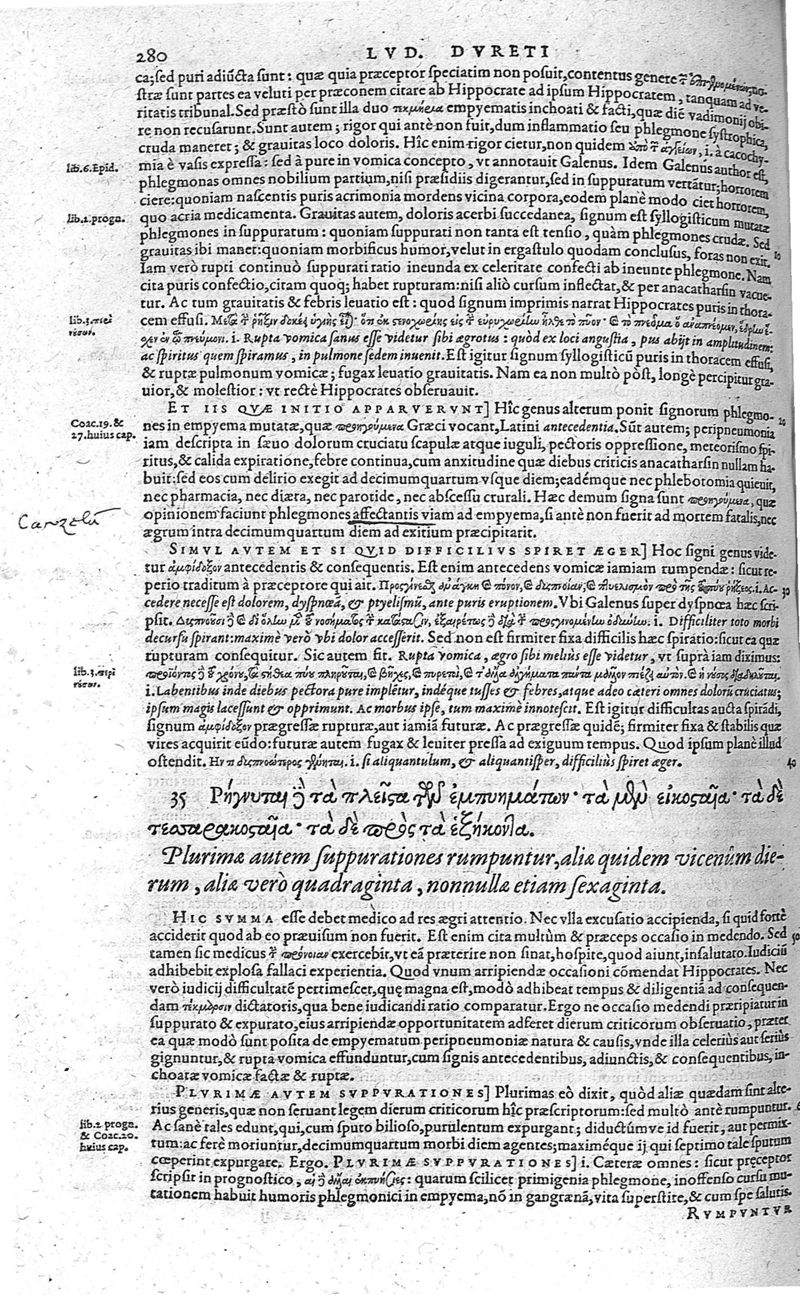 280 LVD. DVRETI
ca; sed puri adiūcta sunt: quæ quia præceptor speciatim non posuit, contentus genere
stræ sunt partes ea veluti per præconem citare ab Hippocrate ad ipsum Hippocratem, tanquam ad ve-
ritatis tribunal. Sed præstò sunt illa duo empyematis inchoati & facti, quæ diē vadimonij obi-
re non recusarunt. Sunt autem; rigor qui antè non fuit, dum inflammatio seu phlegmone systrophica,
cruda maneret; & grauitas loco doloris. Hîc enim rigor cietur, non quidem i. à cacochy-
lib. 6. Epid.
mia è vasis expressa: sed à pure in vomica concepto, vt annotauit Galenus. Idem Galenus author est,
phlegmonas omnes nobilium partium, nisi præsidiis digerantur, sed in suppuratum vertātur; horrorem
ciere: quoniam nascentis puris acrimonia mordens vicina corpora, eodem planè modo ciet horrorem
lib. 2. progn.
quo acria medicamenta. Grauitas autem, doloris acerbi succedanea, signum est syllogisticum mutatæ
phlegmones in suppuratum: quoniam suppurati non tanta est tensio, quàm phlegmones crudæ. Sed
grauitas ibi manet: quoniam morbificus humor, velut in ergastulo quodam conclusus, foras non exit.
Iam verò rupti continuò suppurati ratio ineunda ex celeritate confecti ab ineunte phlegmone. Nam
cita puris confectio, citam quoq; habet rupturam: nisi aliò cursum inflectat, & per anacatharsin vacue-
tur. Ac tum grauitatis & febris leuatio est: quod signum imprimis narrat Hippocrates puris in thora-
cem effusi.
i. Rupta vomica sanus esse videtur sibi ægrotus: quòd ex loci angustia, pus abijt in amplitudinem:
ac spiritus quem spiramus, in pulmone sedem inuenit. Est igitur signum syllogisticū puris in thoracem effusi,
& ruptæ pulmonum vomicæ; fugax leuatio grauitatis. Nam ea non multò pòst, longè percipitur gra-
uior, & molestior: vt rectè Hippocrates obseruauit.
ET IIS QVÆ INITIO APPARVERVNT] Hîc genus alterum ponit signorum phlegmo-
Coac. 19. &
27. huius cap.
nes in empyema mutatæ, quæ Græci vocant, Latini antecedentia. Sūt autem; peripneumonia
iam descripta in sæuo dolorum cruciatu scapulæ atque iuguli, pectoris oppressione, meteorismo spi-
ritus, & calida expiratione, febre continua, cum anxitudine quæ diebus criticis anacatharsin nullam ha-
buit: sed eos cum delirio exegit ad decimumquartum vsque diem; eadémque nec phlebotomia quieuit,
nec pharmacia, nec diæta, nec parotide, nec abscessu crurali. Hæc demum signa sunt quæ
opinionem faciunt phlegmones affectantis viam ad empyema, si antè non fuerit ad mortem fatalis, nec
ægrum intra decimumquartum diem ad exitium præcipitarit.
SIMVL AVTEM ET SI QVID DIFFICILIVS SPIRET ÆGER] Hoc signi genus vide-
tur ἀμφίδοξον antecedentis & consequentis. Est enim antecedens vomicæ iamiam rumpendæ: sicut re-
perio traditum à præceptore qui ait. i. Ac-
cedere necesse est dolorem, dyspnœā, & ptyelismū, ante puris eruptionem. Vbi Galenus super dyspnœa hæc scri-
psit. i. Difficiliter toto morbi
decursu spirant: maximè verò vbi dolor accesserit. Sed non est firmiter fixa difficilis hæc spiratio: sicut ea quæ
rupturam consequitur. Sic autem fit. Rupta vomica, ægro sibi meliùs esse videtur, vt suprà iam diximus:
i. Labentibus inde diebus pectora pure implētur, indéque tusses & febres, atque adeo cæteri omnes dolorū cruciatus;
ipsum magis lacessunt & opprimunt. Ac morbus ipse, tum maximè innotescit. Est igitur difficultas aucta spirādi,
signum ἀμφίδοξον prægressæ rupturæ, aut iamiā futuræ. Ac prægressæ quidē; firmiter fixa & stabilis quæ
vires acquirit eūdo: futuræ autem fugax & leuiter pressa ad exiguum tempus. Quod ipsum planè illud
ostendit. i. si aliquantulum, & aliquantisper, difficiliùs spiret æger.
35 Ῥήγνυται δὲ τὰ πλεῖστα τῶν ἐμπυημάτων· τὰ μὲν εἰκοσταῖα· τὰ δὲ
τεσσαρακοσταῖα· τὰ δὲ πρὸς τὰ ἑξήκοντα.
Plurimæ autem suppurationes rumpuntur, aliæ quidem vicenûm die-
rum, aliæ verò quadraginta, nonnullæ etiam sexaginta.
HIC SVMMA esse debet medico ad res ægri attentio. Nec vlla excusatio accipienda, si quid fortè
acciderit quod ab eo præuisum non fuerit. Est enim cita multùm & præceps occasio in medendo. Sed
tamen sic medicus exercebit, vt eā præterire non sinat, hospite, quod aiunt, insalutato. Iudiciū
adhibebit explosa fallaci experientia. Quod vnum arripiendæ occasioni cōmendat Hippocrates. Nec
verò iudicij difficultatē pertimescet, quę magna est, modò adhibeat tempus & diligentiā ad consequen-
dam dictatoris, qua bene iudicandi ratio comparatur. Ergo ne occasio medendi præripiatur in
suppurato & expurato, eius arripiendæ opportunitatem adferet dierum criticorum obseruatio, præter
ea quæ modò sunt posita de empyematum peripneumoniæ natura & causis, vnde illa celeriùs aut seriùs
gignuntur, & rupta vomica effunduntur, cum signis antecedentibus, adiunctis, & consequentibus, in-
choatæ vomicæ factæ & ruptæ.
PLVRIMÆ AVTEM SVPPVRATIONES] Plurimas eò dixit, quòd aliæ quædam sint alte-
rius generis, quæ non seruant legem dierum criticorum hîc præscriptorum: sed multò antè rumpuntur.
lib. 2 progn.
& Coac. 20.
huius cap.
Ac sanè tales edunt, qui, cum sputo bilioso, purulentum expurgant; diductúmve id fuerit, aut permix-
tum: ac ferè moriuntur, decimumquartum morbi diem agentes; maximéque ij qui septimo tale sputum
cœperint expurgare. Ergo. PLVRIMÆ SVPPVRATIONES] i. Cæteræ omnes: sicut pręceptor
scripsit in prognostico, quarum scilicet primigenia phlegmone, inoffenso cursu mu-
tationem habuit humoris phlegmonici in empyema, nō in gangrænā, vita superstite, & cum spe salutis.
RVMPVNTVR